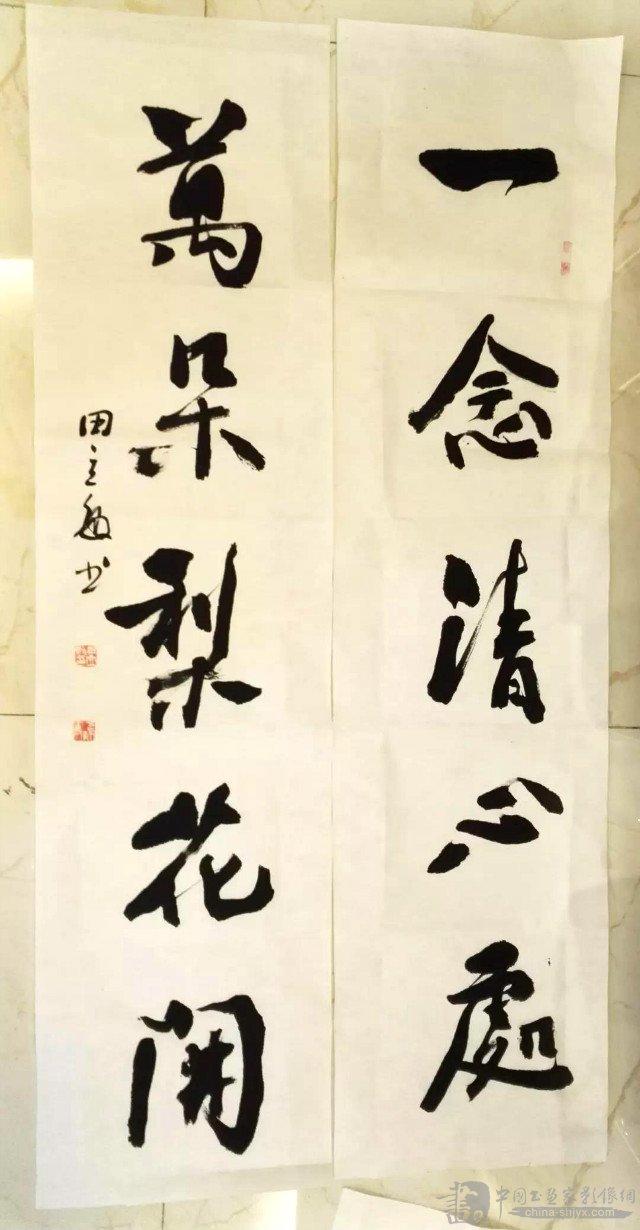 一念清心處
萬朵梨花開
田立敏书
中國书画家影像網
china-shjyx.com